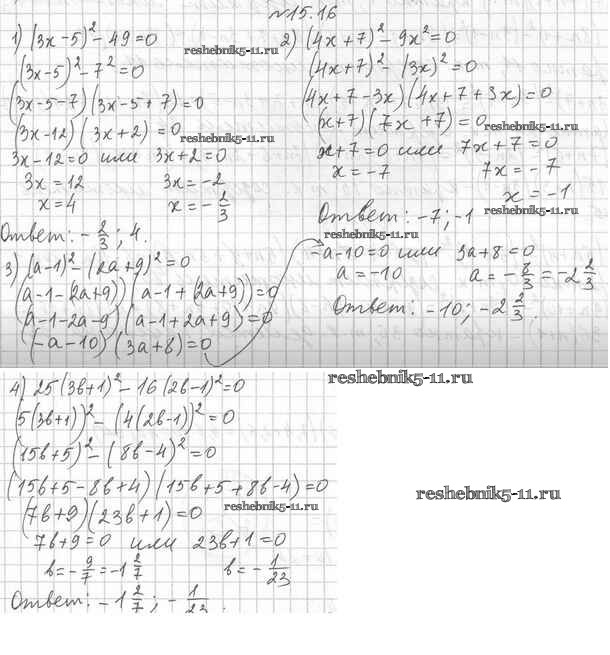 №15.16
1) (3x-5)² - 49 = 0
(3x-5)² - 7² = 0
(3x-5-7)(3x-5+7) = 0
(3x-12)(3x+2) = 0
3x-12=0 или 3x+2=0
3x = 12 3x = -2
x = 4 x = -2/3
Ответ: -2/3; 4.
reshebnik5-11.ru
reshebnik5-11.ru
2) (4x+7)² - 9x² = 0
(4x+7)² - (3x)² = 0
(4x+7-3x)(4x+7+3x) = 0
(x+7)(7x+7) = 0
x+7=0 или 7x+7=0
x = -7 7x = -7
x = -1
Ответ: -7; -1
reshebnik5-11.ru
reshebnik5-11.ru
3) (a-1)² - (2a+9)² = 0
(a-1-(2a+9))(a-1+(2a+9)) = 0
(a-1-2a-9)(a-1+2a+9) = 0
(-a-10)(3a+8) = 0
-a-10=0 или 3a+8=0
a = -10 a = -8/3 = -2 2/3
Ответ: -10; -2 2/3.
reshebnik5-11.ru
4) 25(3b+1)² - 16(2b-1)² = 0
(5(3b+1))² - (4(2b-1))² = 0
(15b+5)² - (8b-4)² = 0
(15b+5-8b+4)(15b+5+8b-4) = 0
(7b+9)(23b+1) = 0
7b+9=0 или 23b+1=0
b = -9/7 = -1 2/7 b = -1/23
Ответ: -1 2/7; -1/23.
reshebnik5-11.ru
reshebnik5-11.ru